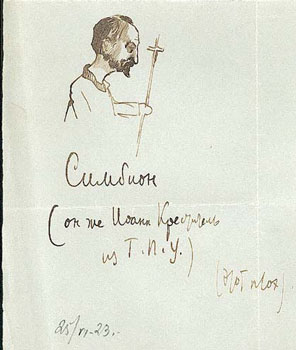 Симбион
(он же Иоанн Креститель
из Г.П.У.)
(этот плох)
25/VI-23.-